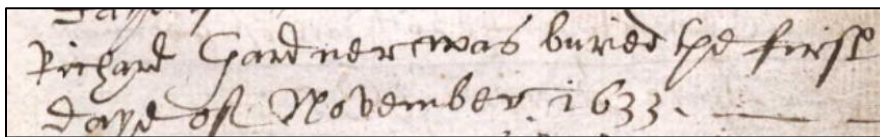 Richard Gardner was buried the first
daye of November 1633.